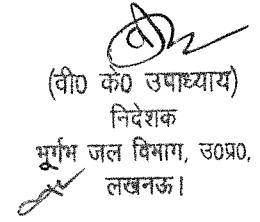 (वी0 के0 उपाध्याय)
निदेशक
भूर्गभ जल विभाग, उ0प्र0,
लखनऊ।